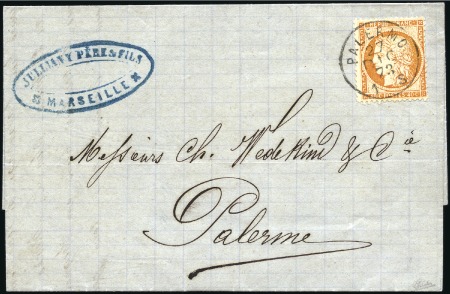 JULLIANY PÈRE & FILS
MARSEILLE
PALERMO
Messieurs Ch. Wedekind & Cie
Palerme